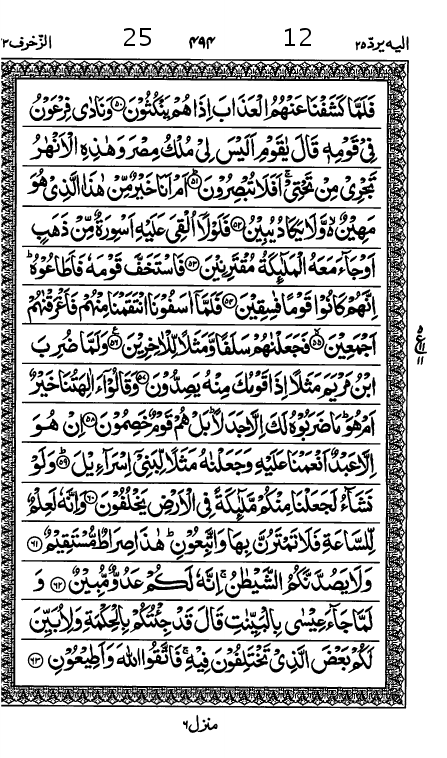 الیه یردّ ۲۵ 12 ۴۹۴ 25 الزّخرف ۴۳
فَلَمَّا كَشَفْنَا عَنْهُمُ الْعَذَابَ اِذَا هُمْ يَنْكُثُوْنَ ﴿۵۰﴾ وَنَادٰى فِرْعَوْنُ
فِيْ قَوْمِهٖ قَالَ يٰقَوْمِ اَلَيْسَ لِيْ مُلْكُ مِصْرَ وَهٰذِهِ الْاَنْهٰرُ
تَجْرِيْ مِنْ تَحْتِيْ ۚ اَفَلَا تُبْصِرُوْنَ ﴿۵۱﴾ اَمْ اَنَا خَيْرٌ مِّنْ هٰذَا الَّذِيْ هُوَ
مَهِيْنٌ ۙ وَّلَا يَكَادُ يُبِيْنُ ﴿۵۲﴾ فَلَوْلَاۤ اُلْقِيَ عَلَيْهِ اَسْوِرَةٌ مِّنْ ذَهَبٍ
اَوْ جَآءَ مَعَهُ الْمَلٰٓئِكَةُ مُقْتَرِنِيْنَ ﴿۵۳﴾ فَاسْتَخَفَّ قَوْمَهٗ فَاَطَاعُوْهُ ؕ
اِنَّهُمْ كَانُوْا قَوْمًا فٰسِقِيْنَ ﴿۵۴﴾ فَلَمَّاۤ اٰسَفُوْنَا انْتَقَمْنَا مِنْهُمْ فَاَغْرَقْنٰهُمْ
اَجْمَعِيْنَ ﴿۵۵﴾ فَجَعَلْنٰهُمْ سَلَفًا وَّمَثَلًا لِّلْاٰخِرِيْنَ ﴿۵۶﴾ وَلَمَّا ضُرِبَ
ابْنُ مَرْيَمَ مَثَلًا اِذَا قَوْمُكَ مِنْهُ يَصِدُّوْنَ ﴿۵۷﴾ وَقَالُوْۤا ءَاٰلِهَتُنَا خَيْرٌ
اَمْ هُوَ ؕ مَا ضَرَبُوْهُ لَكَ اِلَّا جَدَلًا ؕ بَلْ هُمْ قَوْمٌ خَصِمُوْنَ ﴿۵۸﴾ اِنْ هُوَ
اِلَّا عَبْدٌ اَنْعَمْنَا عَلَيْهِ وَجَعَلْنٰهُ مَثَلًا لِّبَنِيْۤ اِسْرَآءِيْلَ ﴿۵۹﴾ وَلَوْ
نَشَآءُ لَجَعَلْنَا مِنْكُمْ مَّلٰٓئِكَةً فِي الْاَرْضِ يَخْلُفُوْنَ ﴿۶۰﴾ وَاِنَّهٗ لَعِلْمٌ
لِّلسَّاعَةِ فَلَا تَمْتَرُنَّ بِهَا وَاتَّبِعُوْنِ ؕ هٰذَا صِرَاطٌ مُّسْتَقِيْمٌ ﴿۶۱﴾
وَلَا يَصُدَّنَّكُمُ الشَّيْطٰنُ ۚ اِنَّهٗ لَكُمْ عَدُوٌّ مُّبِيْنٌ ﴿۶۲﴾ وَ
لَمَّا جَآءَ عِيْسٰى بِالْبَيِّنٰتِ قَالَ قَدْ جِئْتُكُمْ بِالْحِكْمَةِ وَلِاُبَيِّنَ
لَكُمْ بَعْضَ الَّذِيْ تَخْتَلِفُوْنَ فِيْهِ ۚ فَاتَّقُوا اللّٰهَ وَاَطِيْعُوْنِ ﴿۶۳﴾
منزل ۶